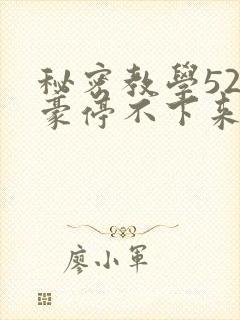 秘密教學52
豪停不下来
廖小軍